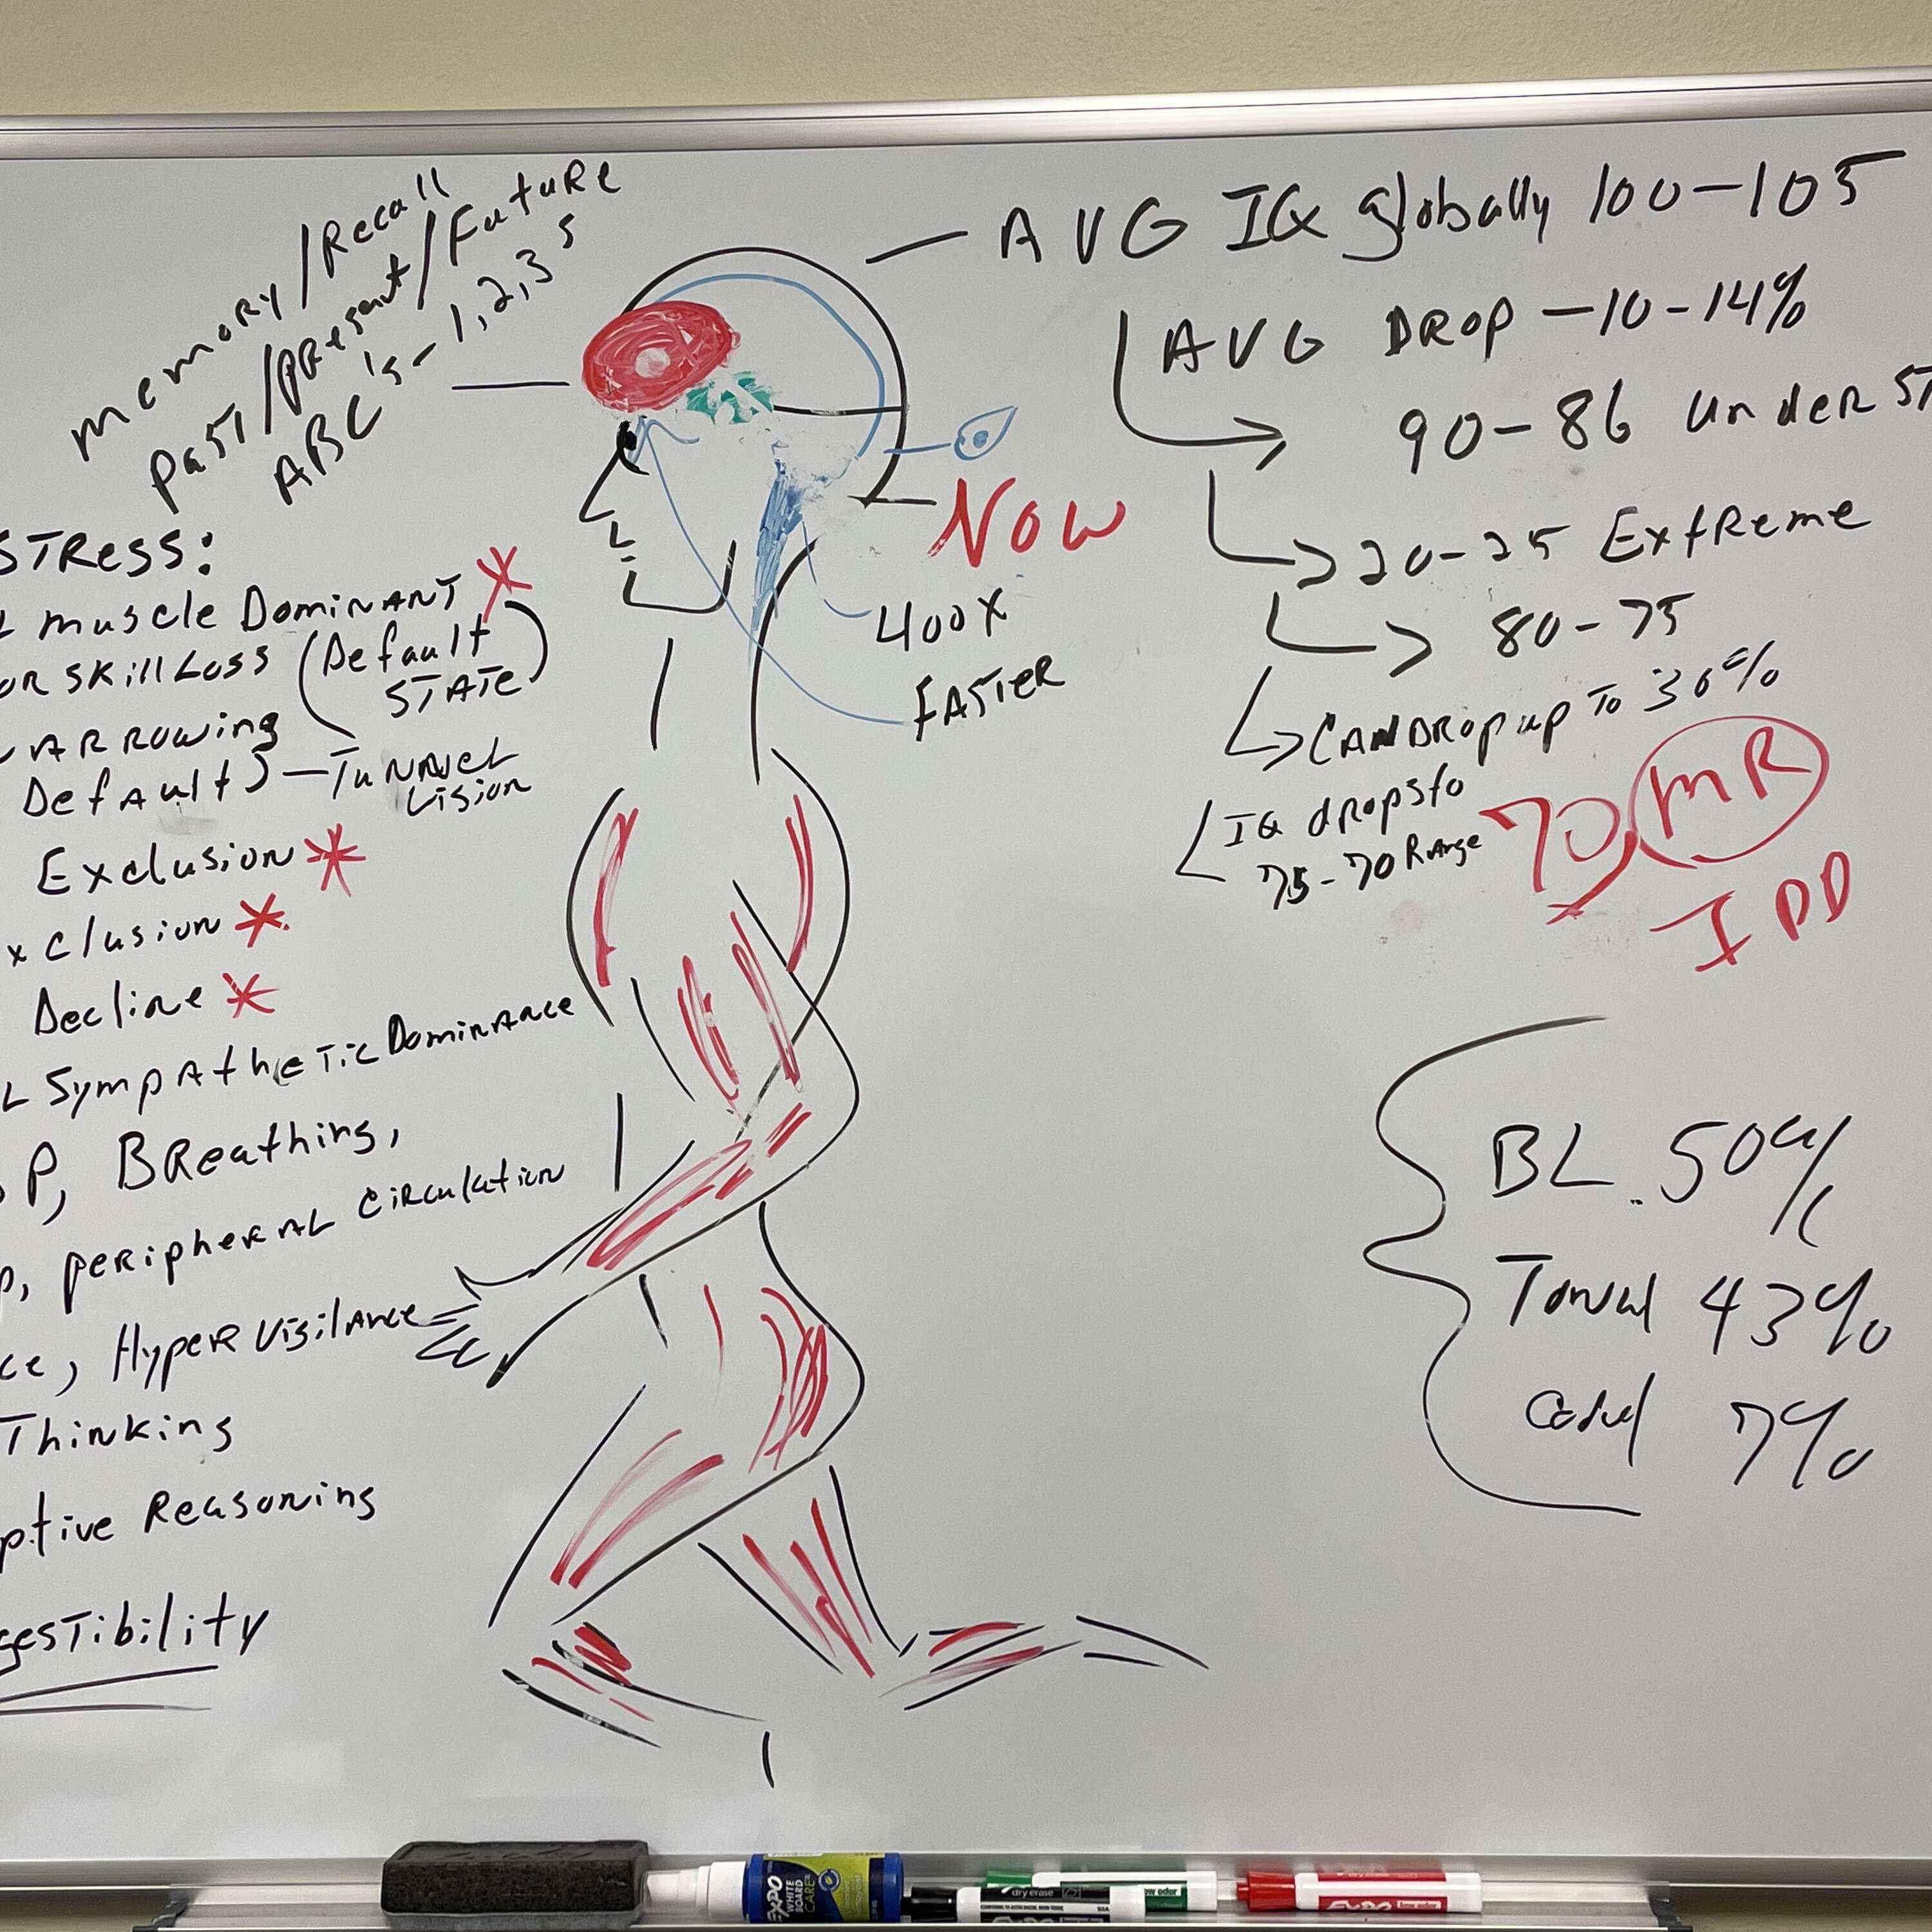 memory/Recall
past/present/Future
ABC's - 1,2,3s
STRess:
muscle Dominant
OR skill Loss (Default
STATE)
ARROWing
Default) - Tunnel
Vision
Exclusion
xclusion
Decline
L Sympathetic Dominance
P, BReathing,
p, peripheral circulation
ce, Hyper Vigilance
Thinking
ptive Reasoning
gesTibility
NOW
400X
FASTER
AVG IQ globally 100-105
AVG DROP -10-14%
90-86 under ST
20-25 Extreme
80-75
CAN DROP up To 30%
IQ drops to
75-70 Range
70 MR
IDD
BL. 50%
Tonal 43%
7%
EXPO
WHITE
BOARD
CARE
dry erase
low odor
EXPO
low odor